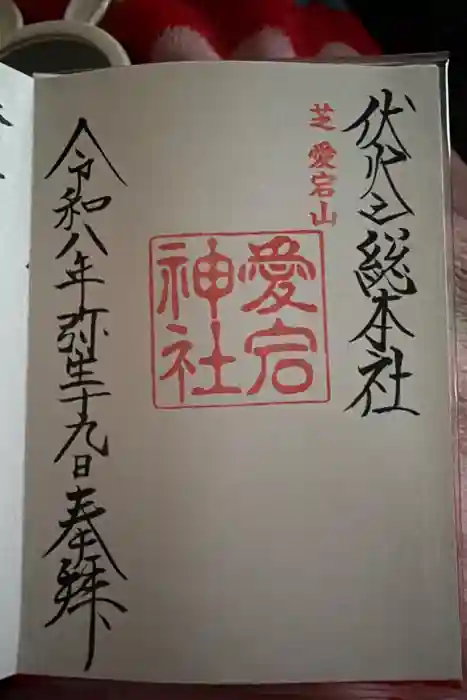 伏火之総本社
芝愛宕山
愛宕
神社
令和八年弥生十九日奉拝